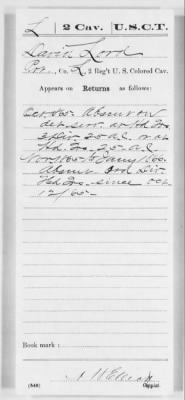 L 2 Cav. U.S.C.T.
David Lord
Pvt., Co. L, 2 Reg't U. S. Colored Cav.
Appears on
Returns as follows:
Oct. /65. Absent on
det. serv. at Hd. Qrs.
Div. 25 A.C.
Hd. Qrs. 25 A.C.
Nov. /65 to
Absent Div.
Hd. Qrs. since Oct.
12/65
Book mark:
(546) Copyist.